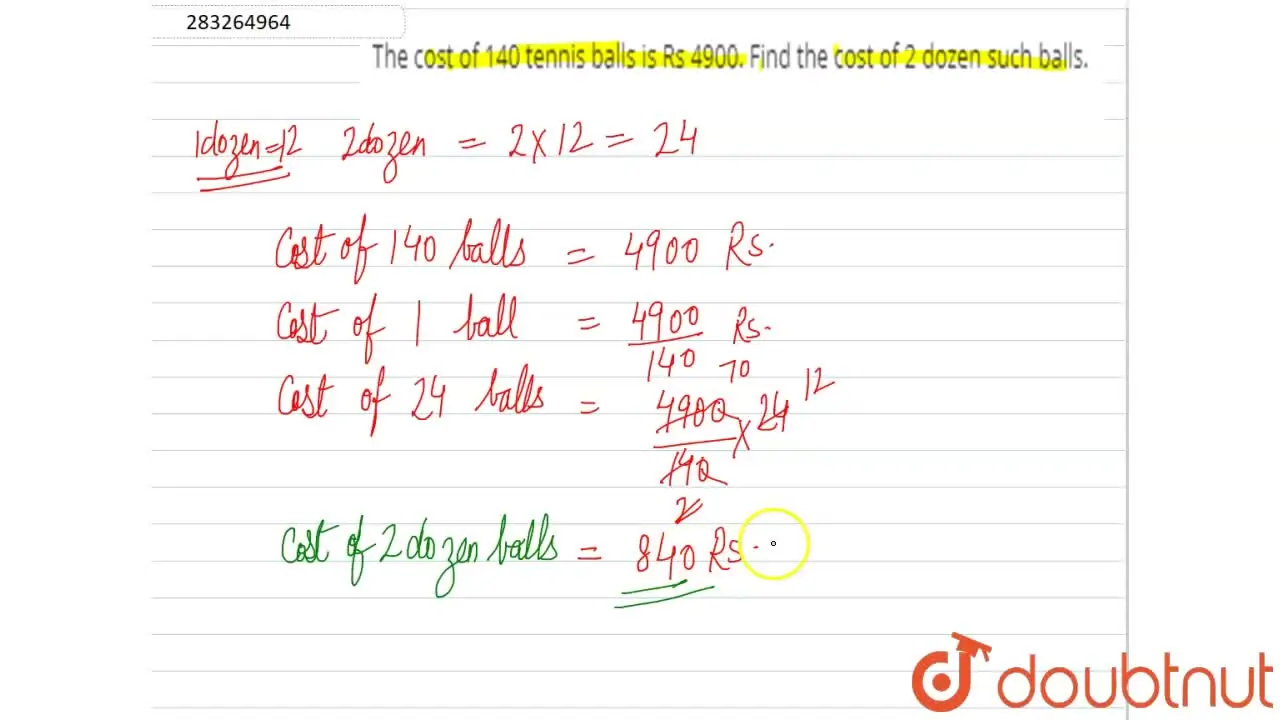 283264964
The cost of 140 tennis balls is Rs 4900. Find the cost of 2 dozen such balls.
1dozen=12 2dozen = 2×12 = 24
Cost of 140 balls = 4900 Rs.
Cost of 1 ball = 4900/140 Rs.
70 12
Cost of 24 balls = 4900/140 × 24
2
Cost of 2 dozen balls = 840 Rs.
doubtnut